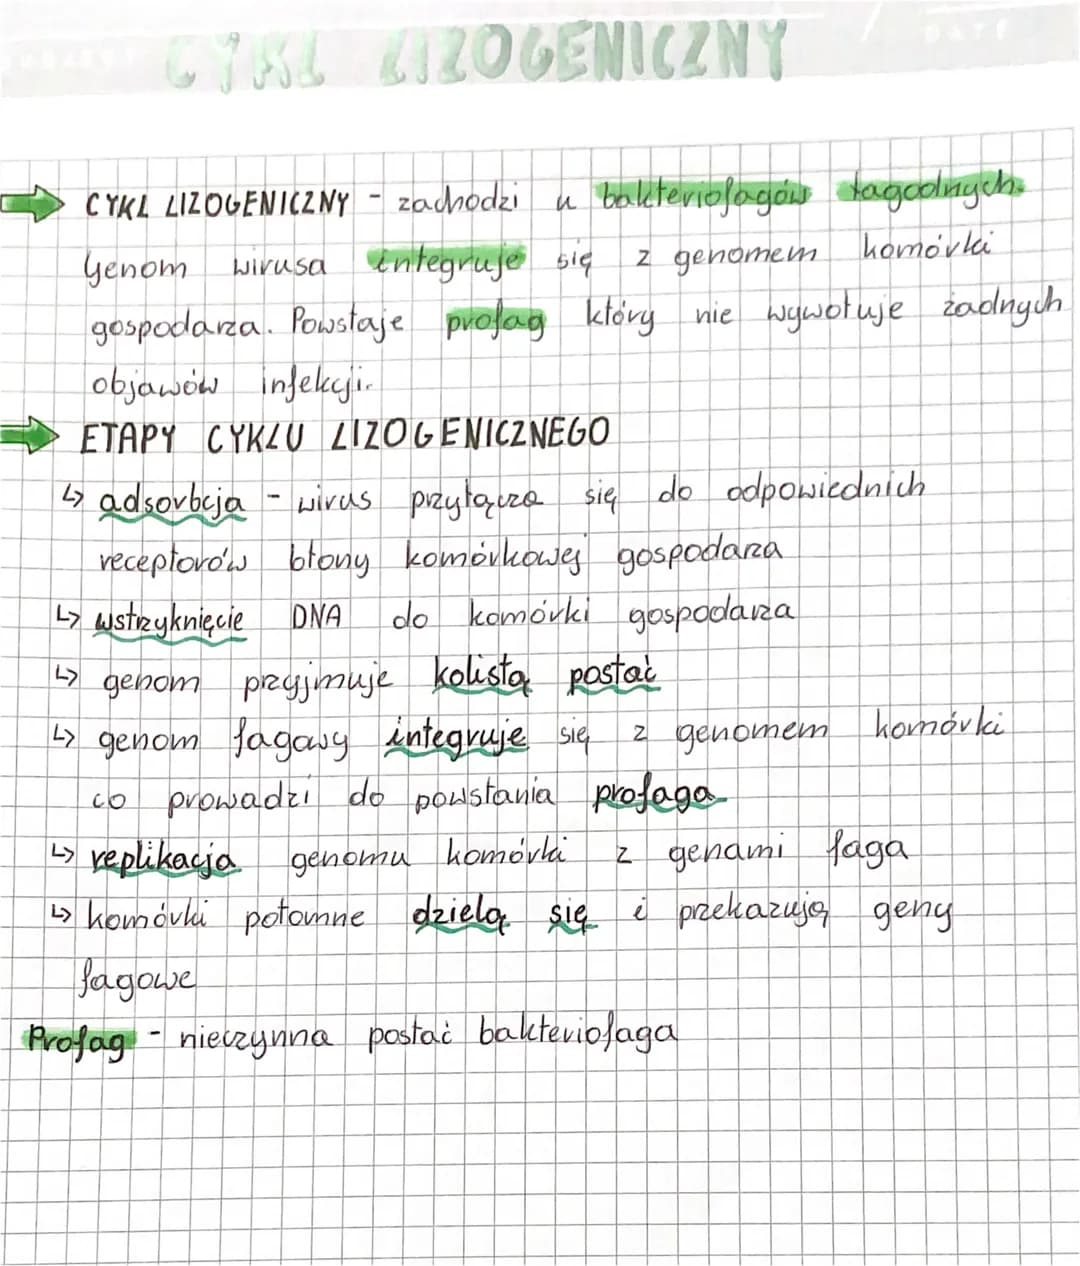 CYKL LIZOGENICZNY
DATE
CYKL LIZOGENICZNY - zachodzi u bakteriofagów łagodnych.
Genom wirusa integruje się z genomem komórki
gospodarza. Powstaje profag który nie wywołuje żadnych
objawów infekcji.
ETAPY CYKLU LIZOGENICZNEGO
↳ adsorbcja - wirus przyłącza się do odpowiednich
receptorów błony komórkowej gospodarza
↳ wstrzyknięcie DNA do komórki gospodarza
↳ genom przyjmuje kolistą postać
↳ genom fagowy integruje się z genomem komórki
co prowadzi do powstania profaga
↳ replikacja genomu komórki z genami faga
↳ komórki potomne dzielą się i przekazują geny
fagowe
Profag - nieczynna postać bakteriofaga